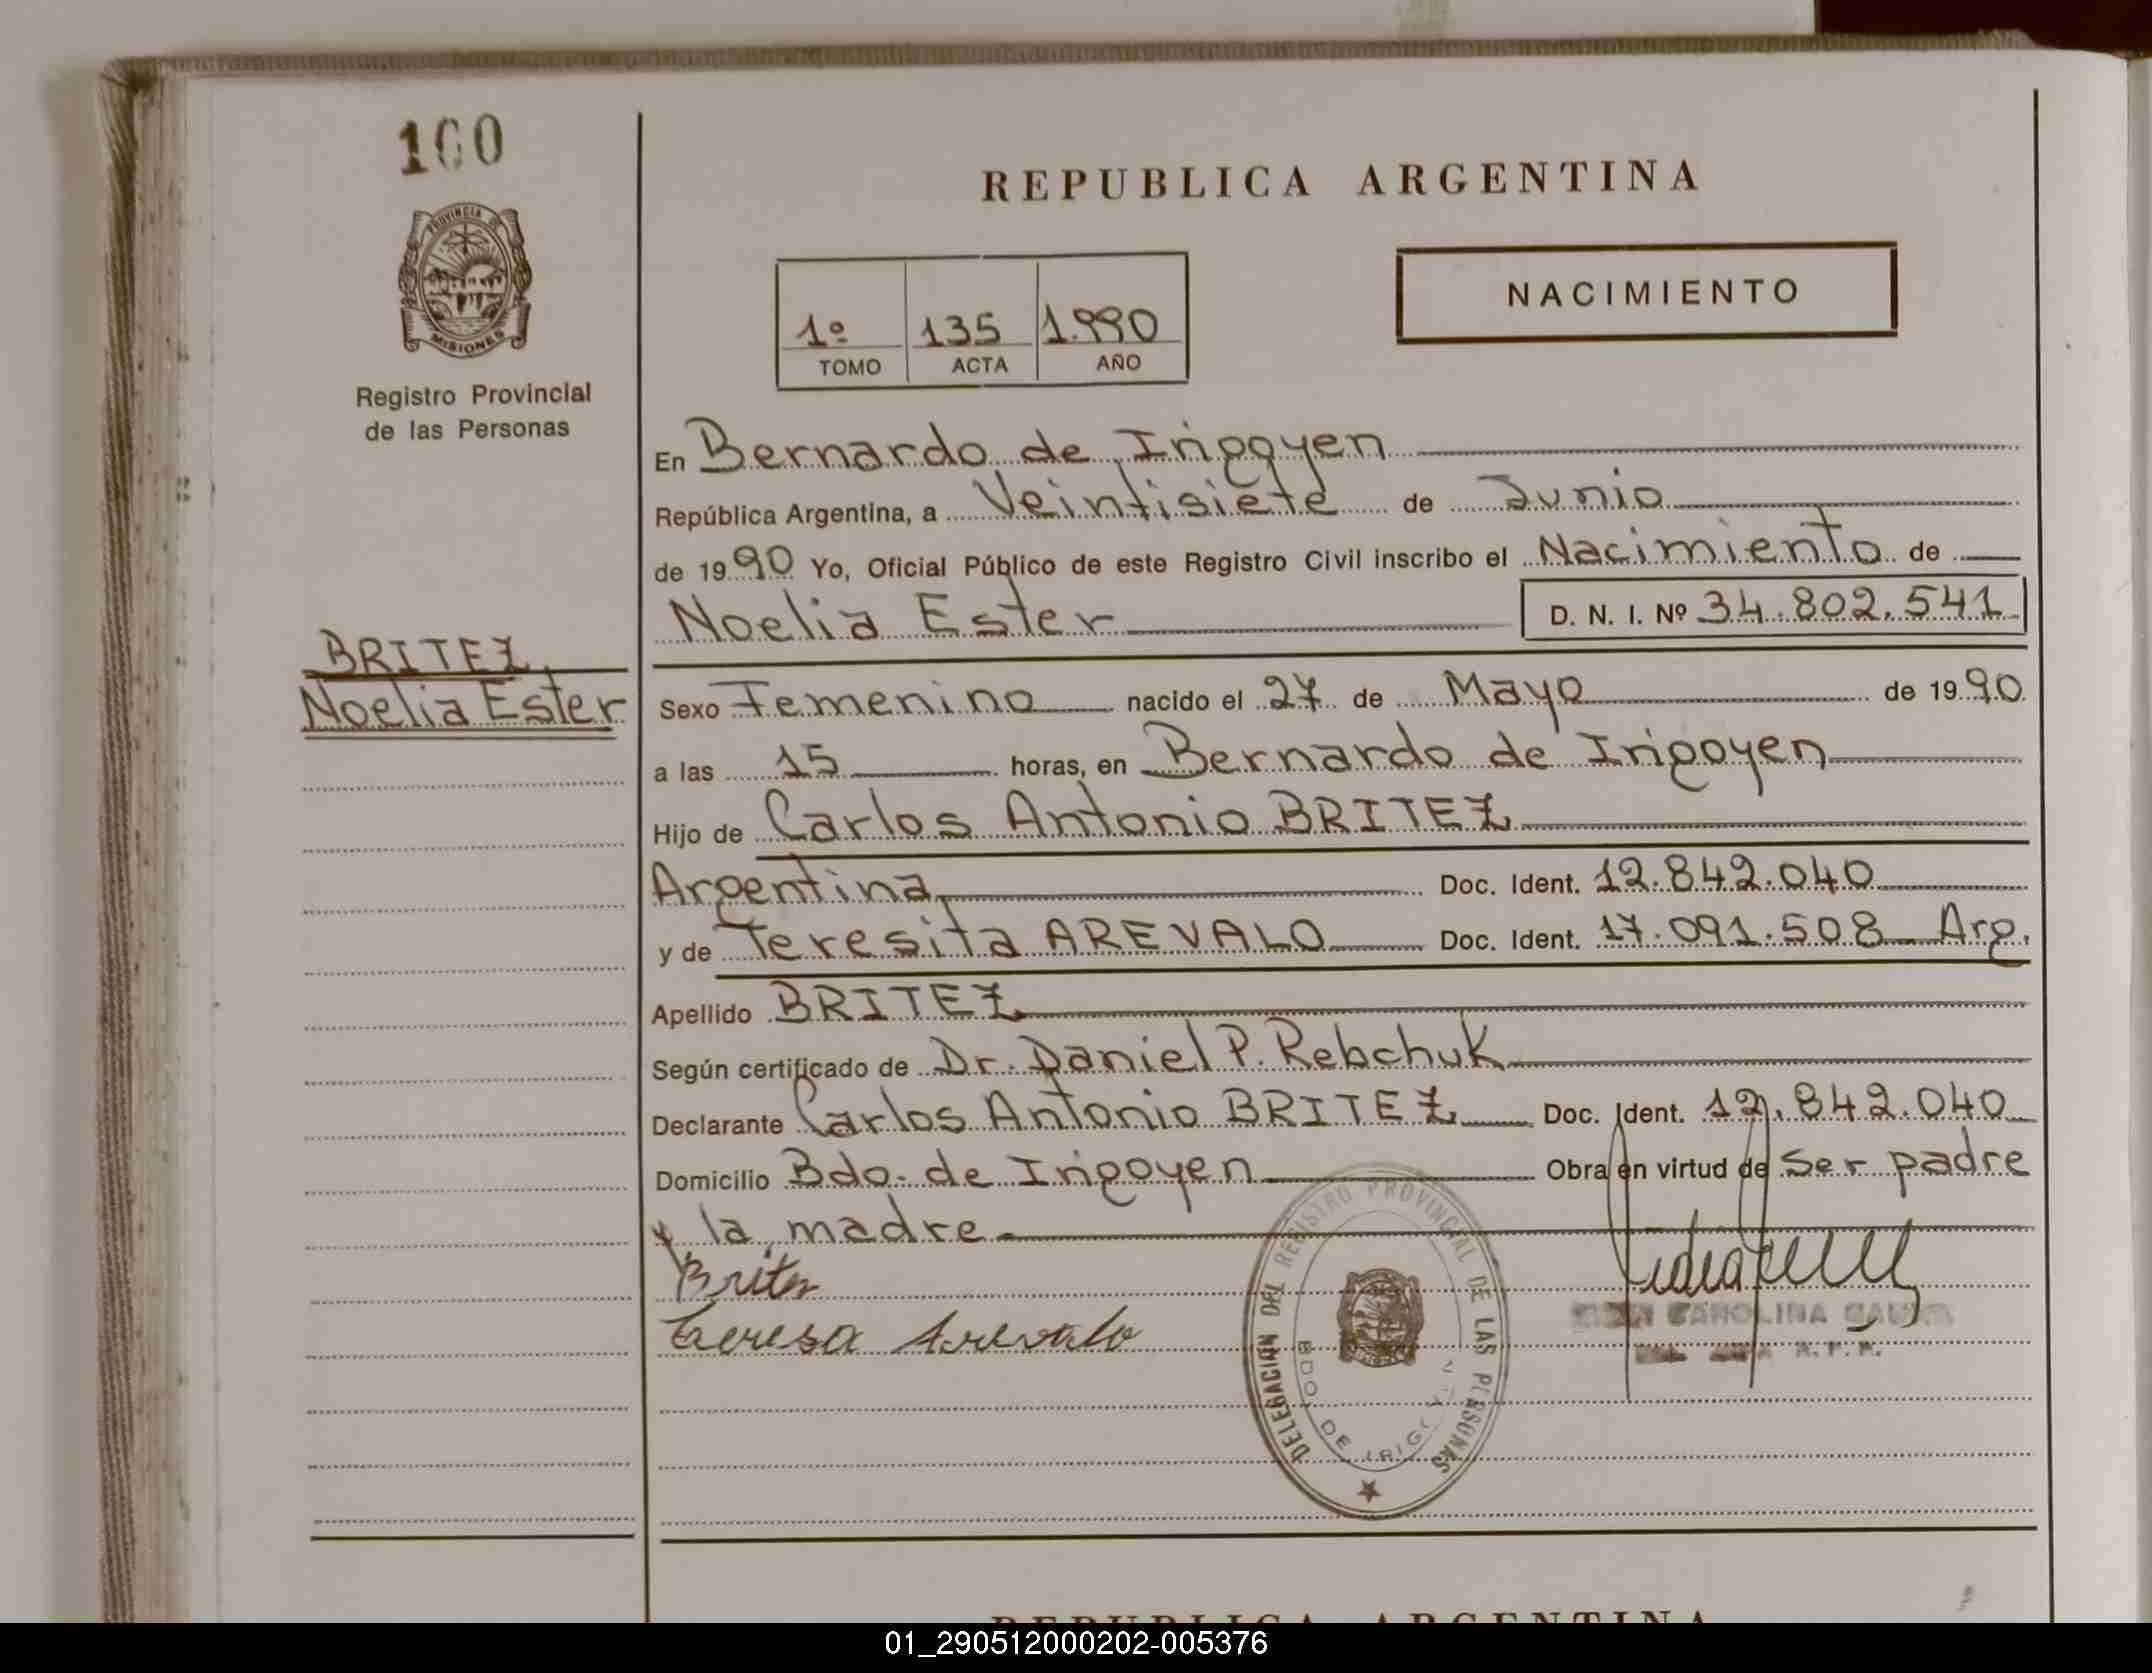 100
PROVINCIA DE
MISIONES
Registro Provincial
de las Personas
BRITEZ
Noelia Ester
REPUBLICA ARGENTINA
NACIMIENTO
1º 135 1.990
TOMO ACTA AÑO
En Bernardo de Irigoyen
República Argentina, a Veintisiete de Junio
de 1990 Yo, Oficial Público de este Registro Civil inscribo el Nacimiento de
Noelia Ester D. N. I. Nº 34.802.541
Sexo Femenino nacido el 27 de Mayo de 1990
a las 15 horas, en Bernardo de Irigoyen
Hijo de Carlos Antonio BRITEZ
Argentina Doc. Ident. 12.842.040
y de Teresita AREVALO Doc. Ident. 17.091.508 Arg.
Apellido BRITEZ
Según certificado de Dr. Daniel P. Rebchuk
Declarante Carlos Antonio BRITEZ Doc. Ident. 12.842.040
Domicilio Bdo. de Irigoyen Obra en virtud de ser padre
y la madre
Britez
Teresa Arevalo
DELEGACION DEL REGISTRO PROVINCIAL DE LAS PERSONAS
BDO. DE IRIGOYEN
CAROLINA
R. P. P.
REPUBLICA ARGENTINA
01_290512000202-005376